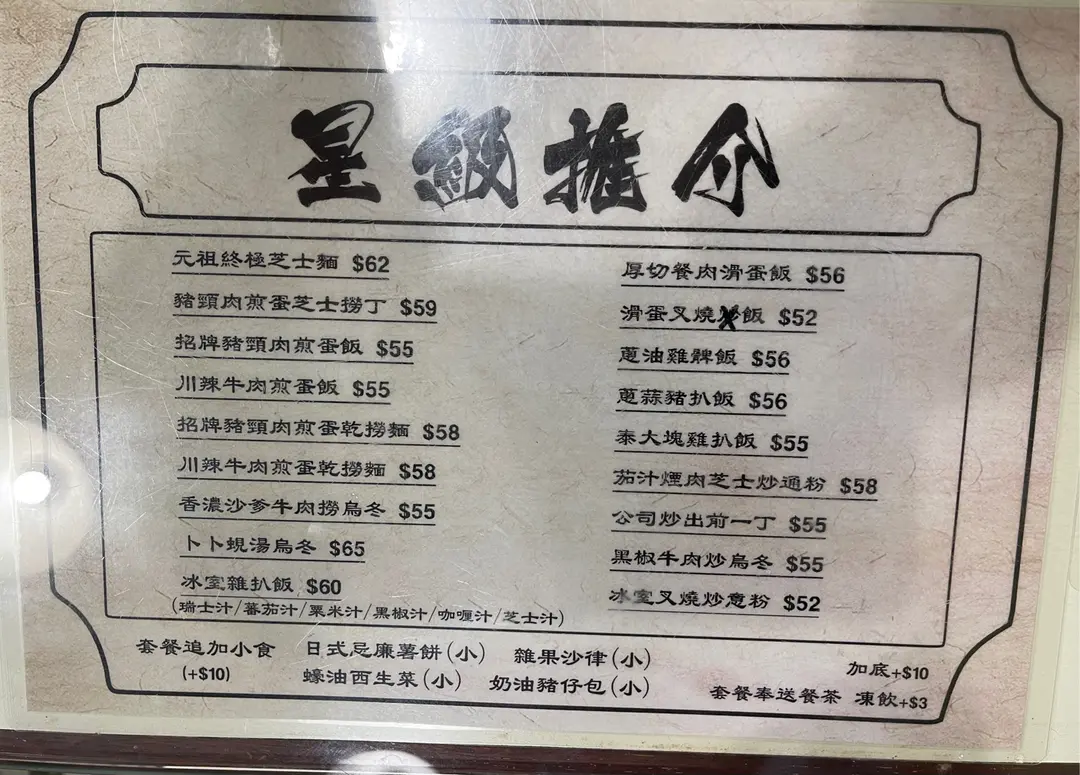 星級推介
元祖終極芝士麵 $62
豬頸肉煎蛋芝士撈丁 $59
招牌豬頸肉煎蛋飯 $55
川辣牛肉煎蛋飯 $55
招牌豬頸肉煎蛋乾撈麵 $58
川辣牛肉煎蛋乾撈麵 $58
香濃沙爹牛肉撈烏冬 $55
卜卜蜆湯烏冬 $65
冰室雜扒飯 $60
(瑞士汁/蕃茄汁/粟米汁/黑椒汁/咖喱汁/芝士汁)
厚切餐肉滑蛋飯 $56
滑蛋叉燒飯 $52
蔥油雞髀飯 $56
蔥蒜豬扒飯 $56
泰大塊雞扒飯 $55
茄汁煙肉芝士炒通粉 $58
公司炒出前一丁 $55
黑椒牛肉炒烏冬 $55
冰室叉燒炒意粉 $52
套餐追加小食 日式忌廉薯餅(小) 雜果沙律(小)
(+$10) 蠔油西生菜(小) 奶油豬仔包(小)
加底+$10
套餐奉送餐茶 凍飲+$3